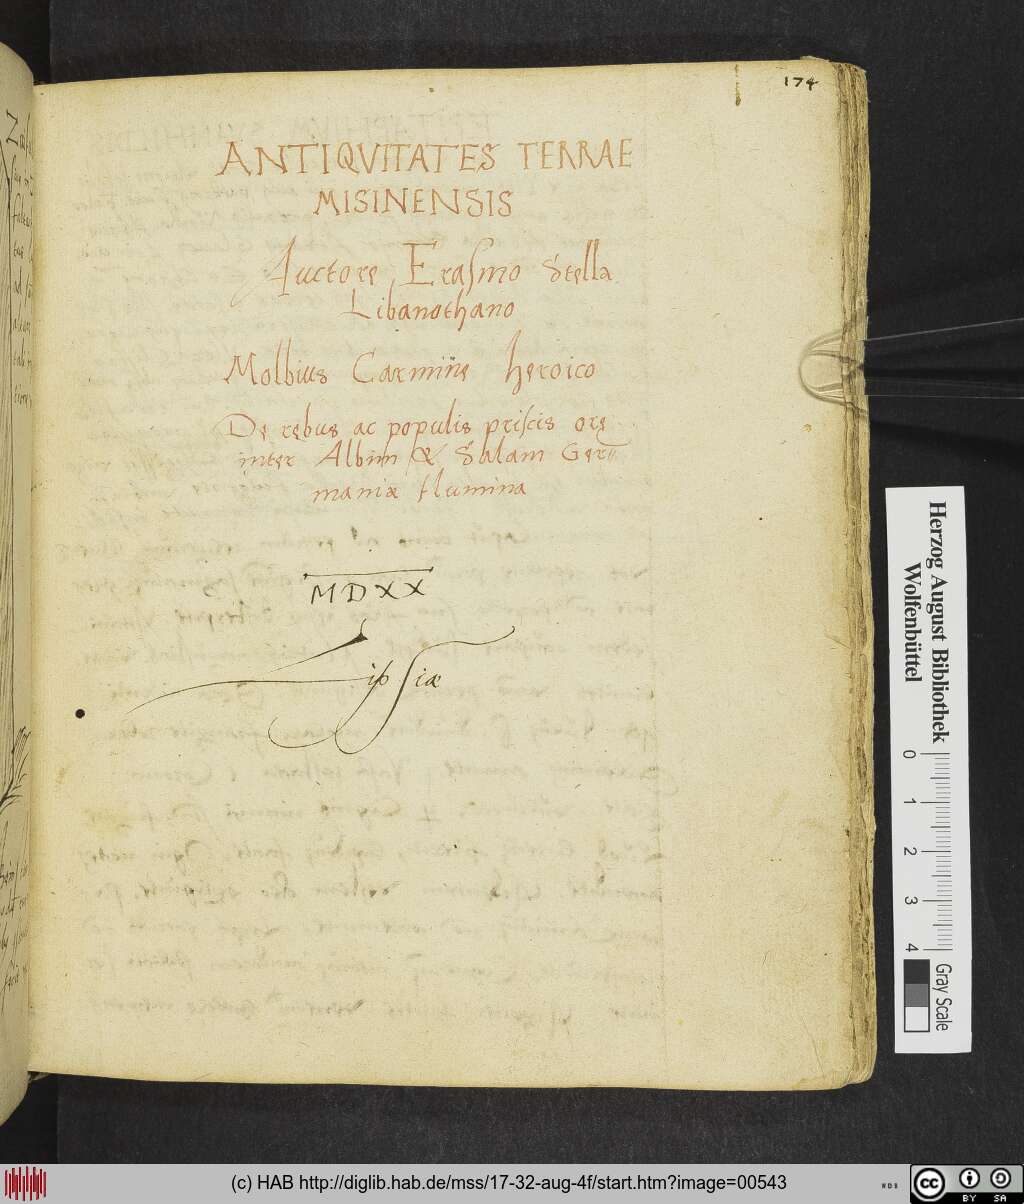 174
ANTIQVITATES TERRAE
MISINENSIS
Auctore Erasmo Stella
Libanothano
Carmine heroico
De rębus ac populis priscis orę
inter Albim & Salam Ger
maniæ flumina
MDXX
Lipsiæ
Herzog August Bibliothek
Wolfenbüttel
0 1 2 3 4
Gray Scale
(c) HAB http://diglib.hab.de/mss/17-32-aug-4f/start.htm?image=00543
cc BY SA